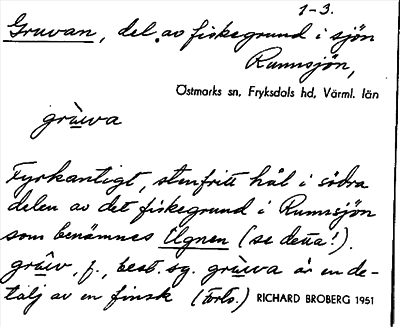 1-3.
Gruvan, del av fiskegrund i sjön
Rumsjön,
Östmarks sn, Fryksdals hd, Värml. län
grùwa
Fyrkantigt, stenfritt hål i södra
delen av det fiskegrund i Rumsjön
som benämnes Ugnen (se detta!).
grûw, f., best. sg. grùwa är en de-
talj av en finsk (Forts.) RICHARD BROBERG 1951